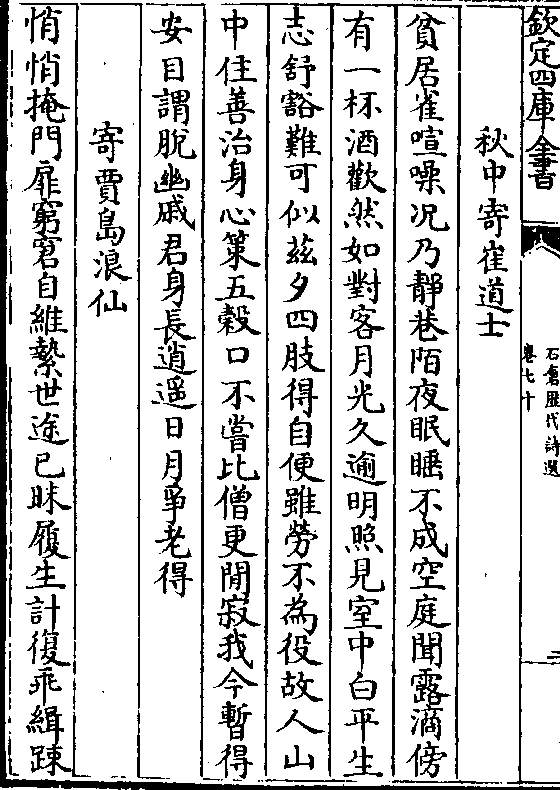 欽定四庫全書
石倉歷代詩選
卷七十
二
秋中寄崔道士
貧居雀喧噪况乃靜巷陌夜眠睡不成空庭聞露滴傍
有一杯酒歡然如對客月光久逾明照見室中白平生
志舒豁難可似兹夕四肢得自便雖勞不為役故人山
中住善治身心䇿五穀口不嘗比僧更閒寂我今暫得
安自謂脫幽戚君身長逍遥日月爭老得
寄賈島浪仙
悄悄掩門扉窮窘自維縶世途已昧履生計復乖緝踈